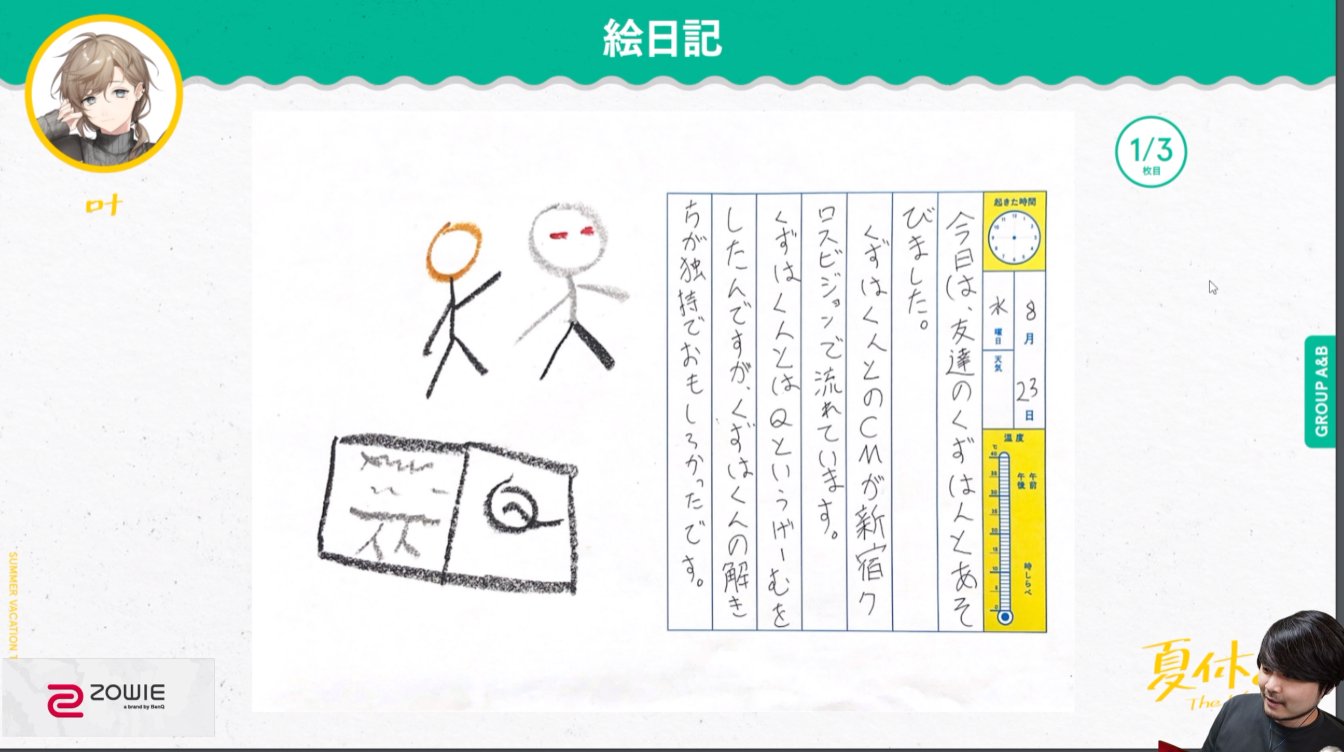 絵日記
叶
1/3
枚目
起きた時間
8月23日
水曜日
天気
温度
℃
午前
午後
時しらべ
今日は、友達のくずはんとあそ
びました。
くずはくんとのCMが新宿ク
ロスビジョンで流れています。
くずはくんとはQというげーむを
したんですが、くずはくんの解き
ちが独特でおもしろかったです。
GROUP A&B
SUMMER VACATION
ZOWIE
a brand by BenQ
夏休
The